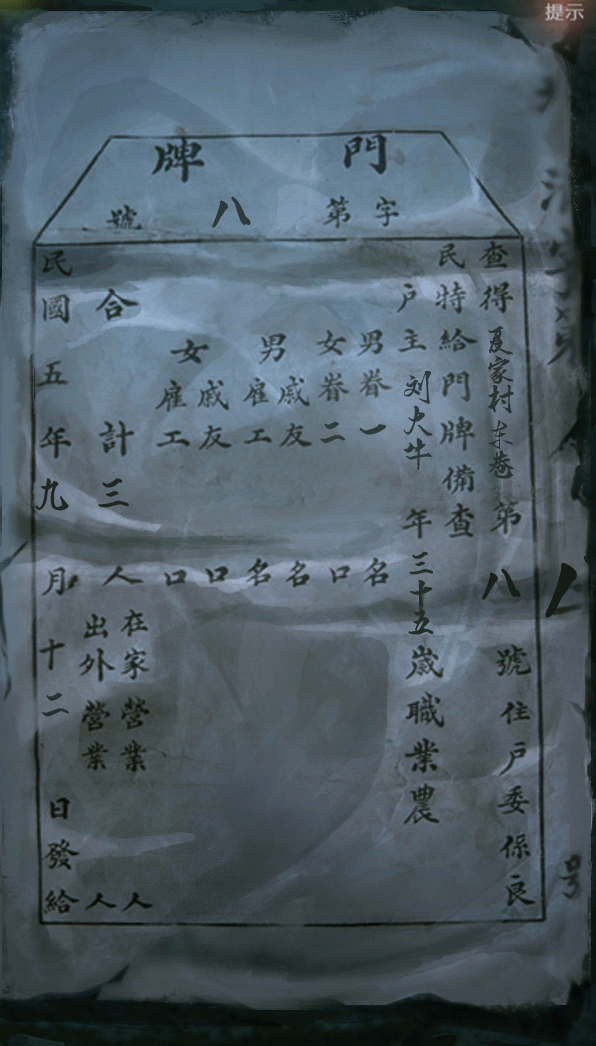 提示
門牌
字第八號
查得夏家村东巷第八號住戶委係良
民特給門牌備查
戶主刘大牛年三十五歲職業農
男眷一名
女眷二口
男
戚友名
雇工名
女
戚友口
雇工口
合計三人
在家營業人
出外營業人
民國五年九月十二日發給
号